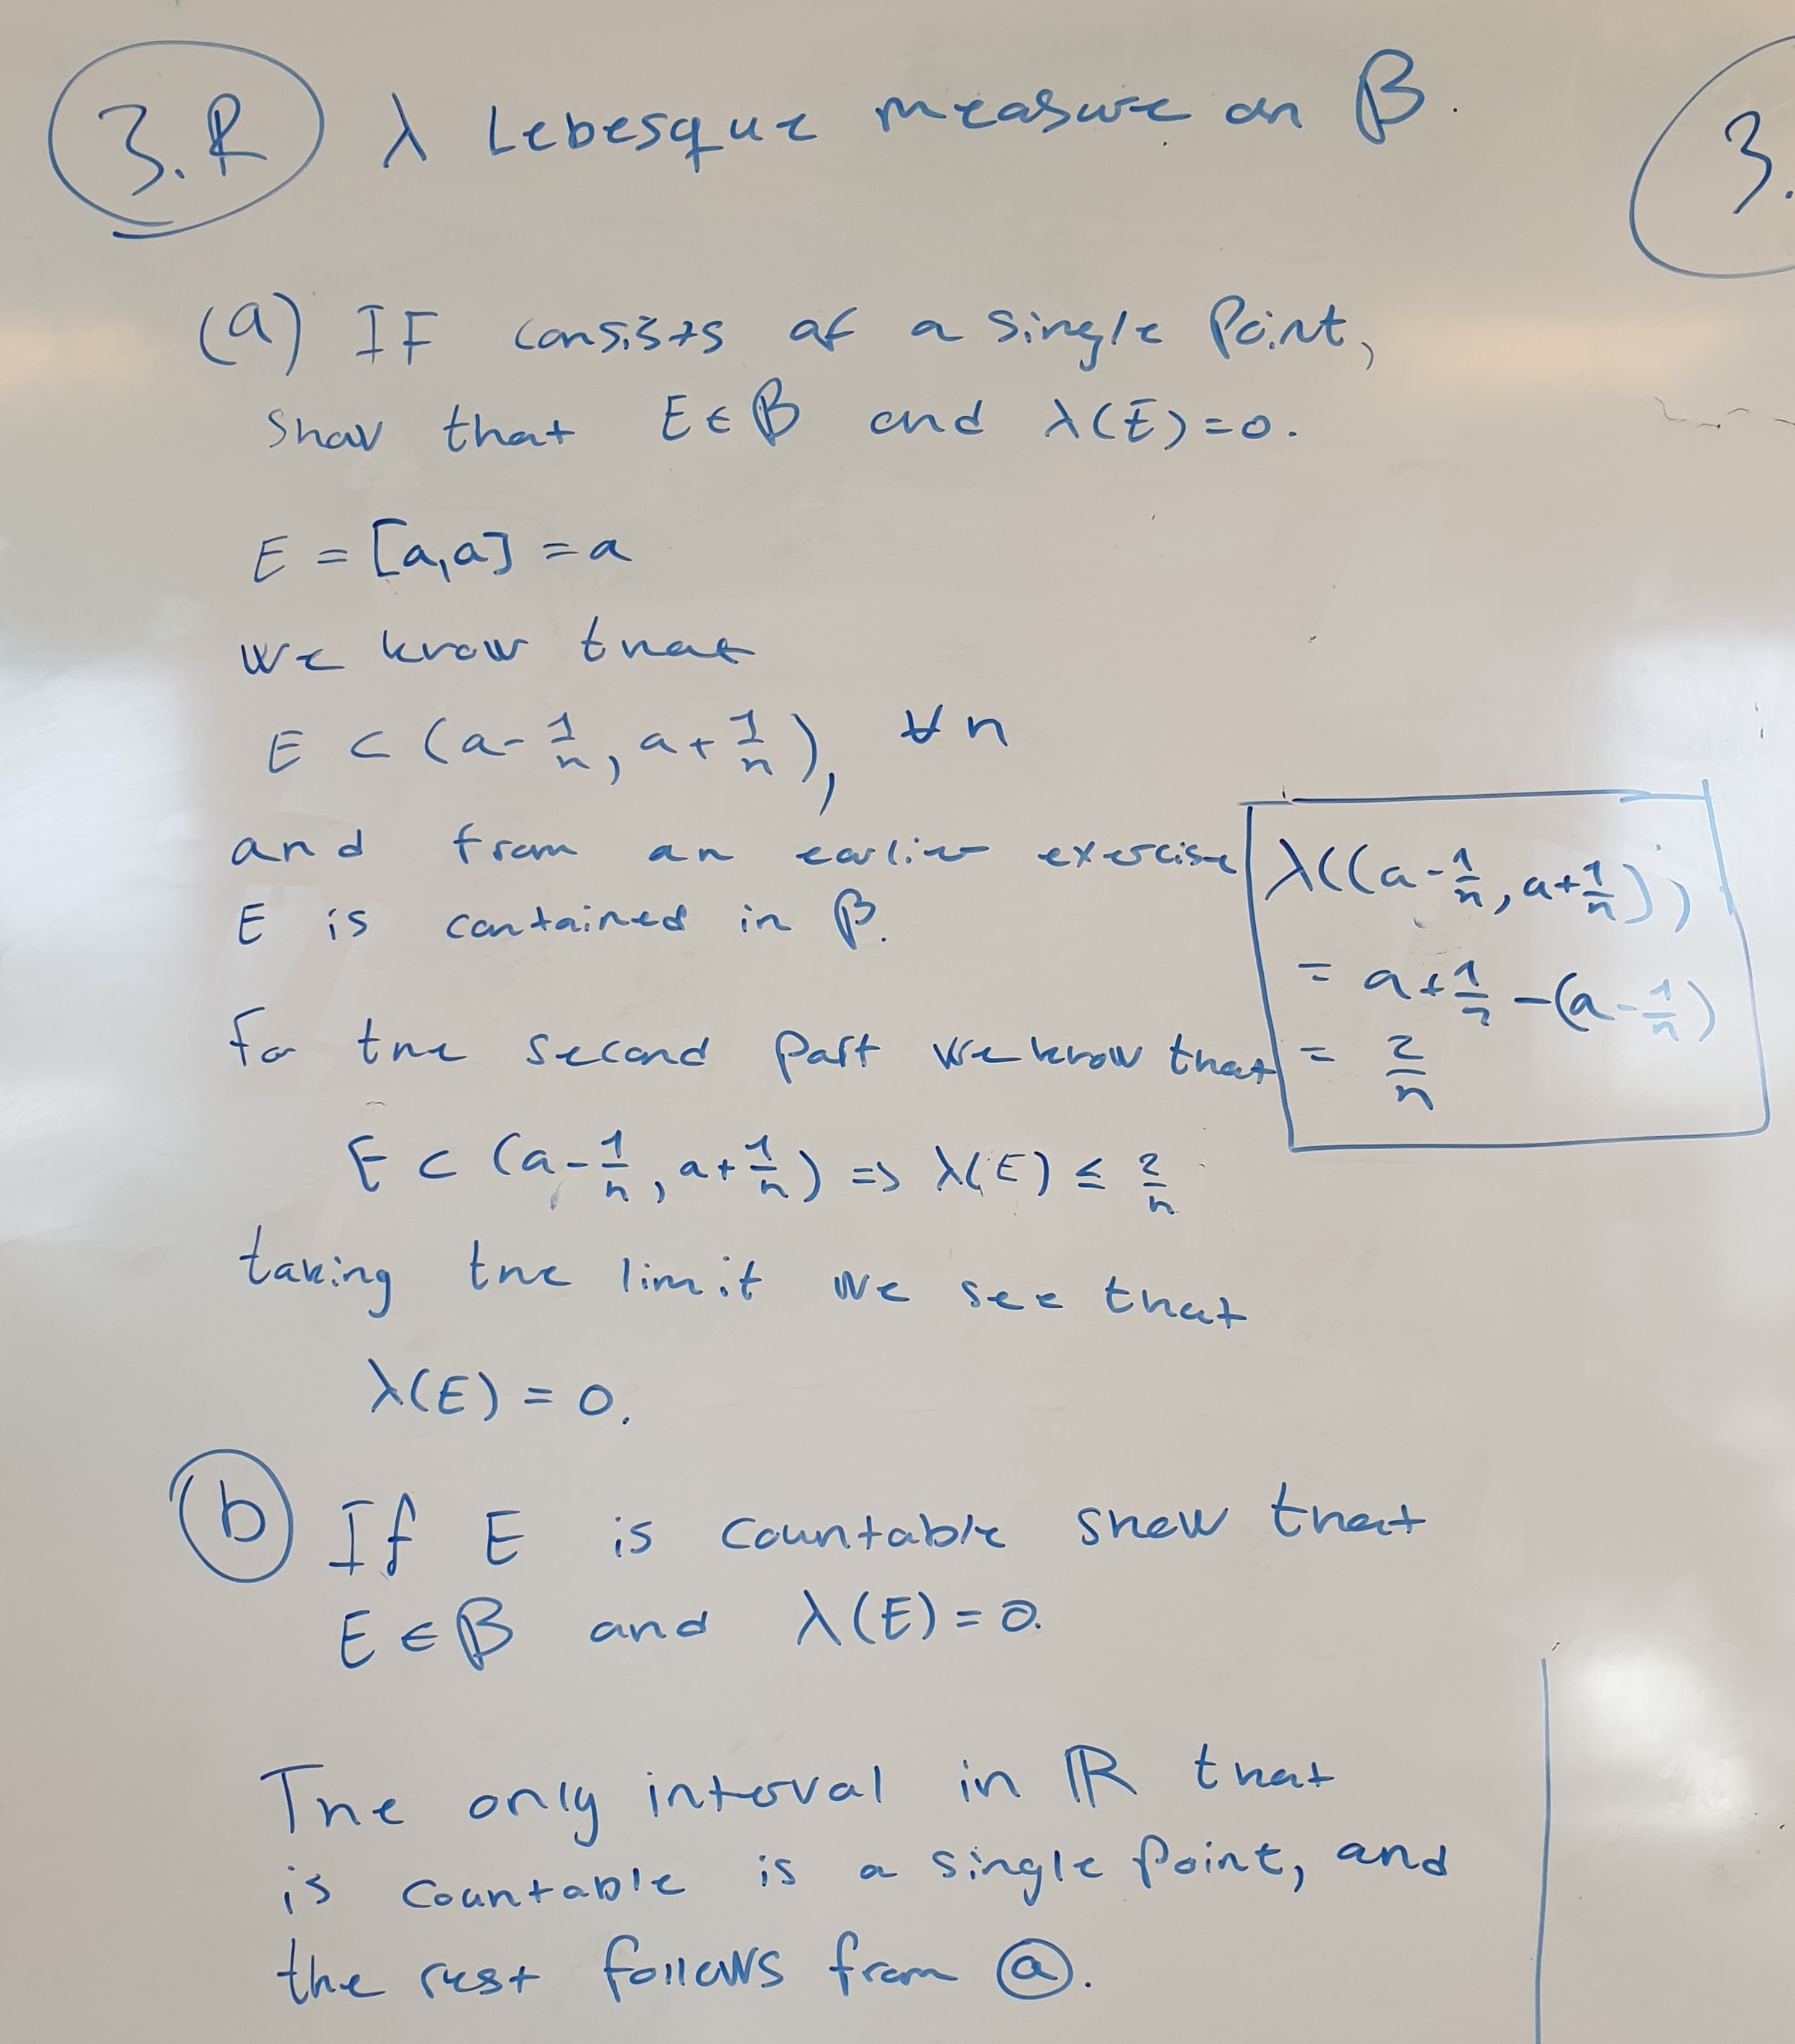 3.R λ Lebesque measure on B.
3.
(a) IF consists of a single Point,
show that E ∈ B and λ(E)=0.
E = [a,a] = a
we know that
E ⊂ (a - 1/n, a + 1/n), ∀ n
and from an earlier exercise
E is contained in B.
λ((a - 1/n, a + 1/n))
= a + 1/n - (a - 1/n)
= 2/n
For the second Part we know that
E ⊂ (a - 1/n, a + 1/n) => λ(E) ≤ 2/n
taking the limit we see that
λ(E) = 0.
(b) If E is countable show that
E ∈ B and λ(E) = 0.
The only interval in ℝ that
is countable is a single point, and
the rest follows from (a).